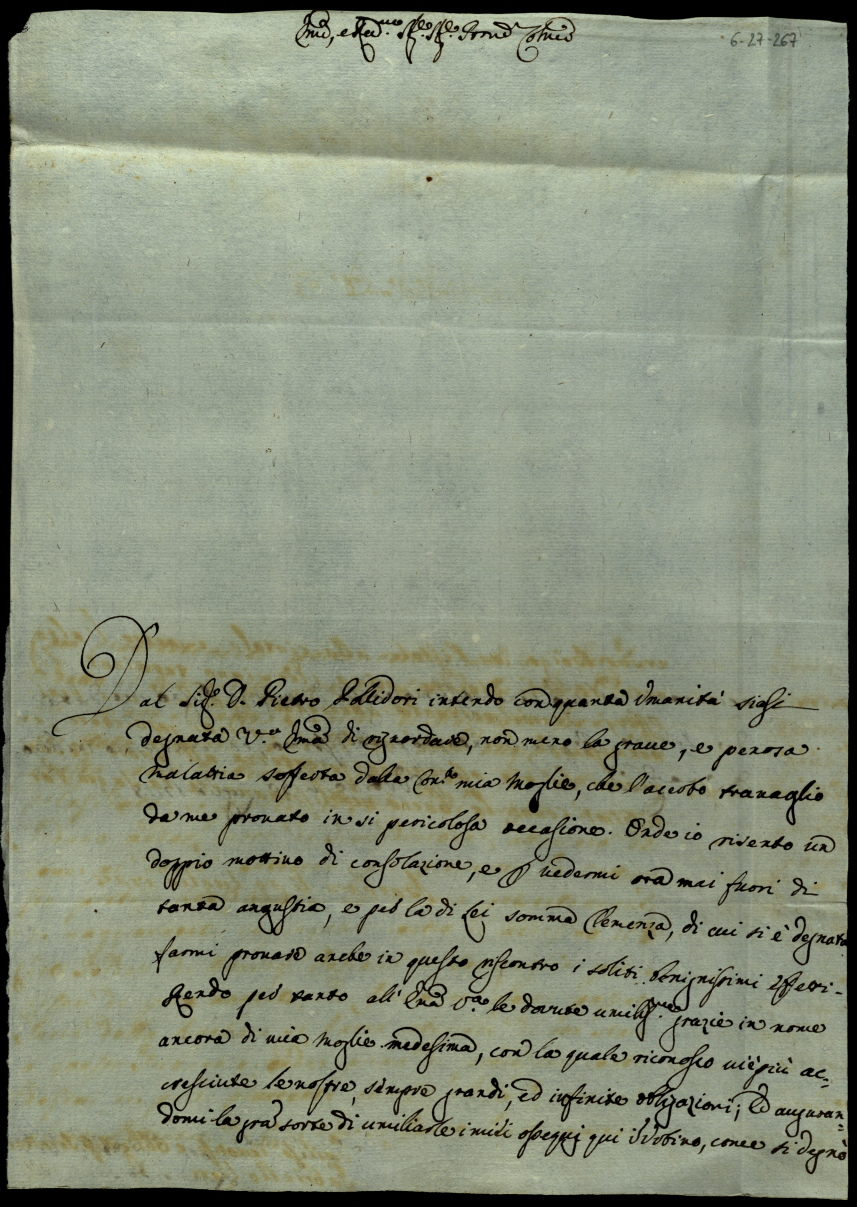 Em͞o, e Re͞u.mo Sig.re Sig.re P͞ron Col͞mo
6-27-267
Dal Sig.r D. Pietro Pollidori intendo con quanta Umanità siasi
degnata V.a Em͞a di riguardare, non meno la graue, e penosa
malattia sofferta dalla mia Moglie, che l'acerbo trauaglio
da me prouato in si pericolosa occasione. Onde io risento un
doppio mottiuo di consolazione, e p uedermi ora mai fuori di
tanta angustia, e per la di Lei somma Clemenza, di cui si è degnata
farmi prouare anche in questo riscontro i soliti benignissimi Effetti.
Rendo per tanto all' Em͞a V.a le dovute umiliss.me grazie in nome
ancora di mia Moglie medesima, con la quale riconosco uiè più ac-
cresciute le nostre, sempre grandi, ed infinite obligazioni; Ed auguran-
domi la gra͞ sorte di umiliarle i miei ossequij qui in Vrbino, come si degnò